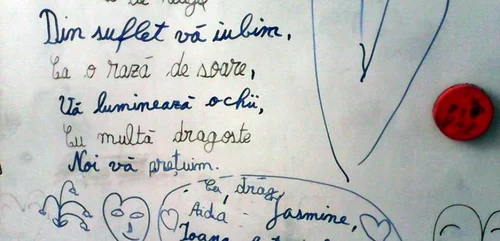 Din suflet vă iubim,
Ca o rază de soare,
Vă luminează ochii,
Cu multă dragoste
Noi vă prețuim.
Cu drag,
Aida - Jasmine,
Ioana